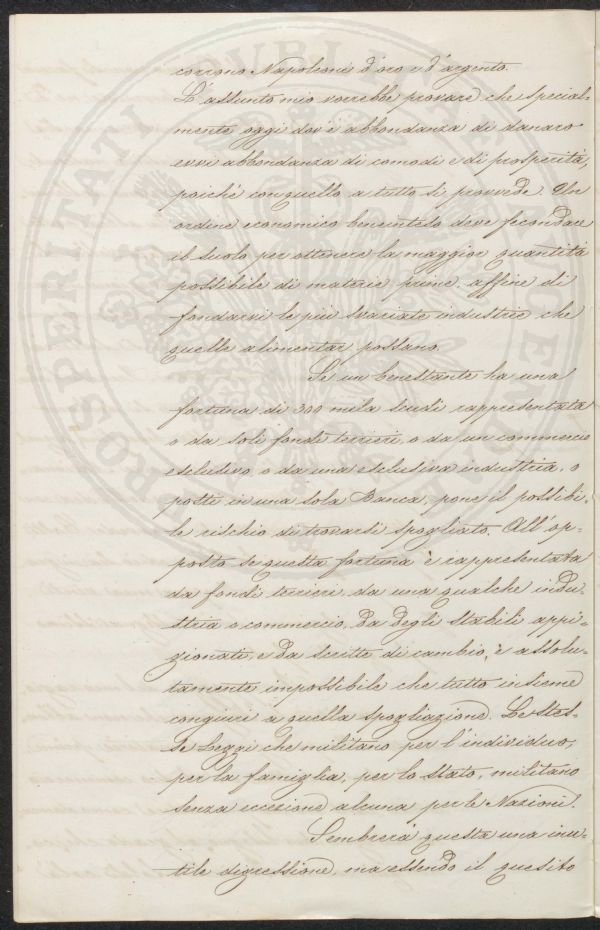 corrono Napoleoni d'oro e d'argento.
L'assunto mio vorrebbe provare che special-
mente oggi dov'è abbondanza di danaro
evvi abbondanza di comodi e di prosperità,
poichè con quello a tutto si provvede. Un
ordine economico beninteso deve fecondare
il suolo per ottenere la maggior quantità
possibile di materie prime, affine di
fondarvi le più svariate industrie che
quelle alimentar possano.
Se un benestante ha una
fortuna di 300 mila scudi rappresentata
o da soli fondi terrieri, o da un commercio
esclusivo, o da una esclusiva industria, o
posti in una sola Banca, pone il possibi-
le rischio di trovarsi spogliato. All'op-
posto se questa fortuna è rappresentata
da fondi terrieri, da una qualche indu-
stria o commercio, da degli stabili appi-
gionati, e da scritte di cambio, è assolu-
tamente impossibile che tutto insieme
congiuri a quella spogliazione. Le stes-
se Leggi che militano per l'individuo,
per la famiglia, per lo Stato, militano
senza eccezione alcuna per le Nazioni.
Sembrerà questa una inu-
tile digressione, ma essendo il quesito
PROSPERITATI PUBLICAE AUGENDAE